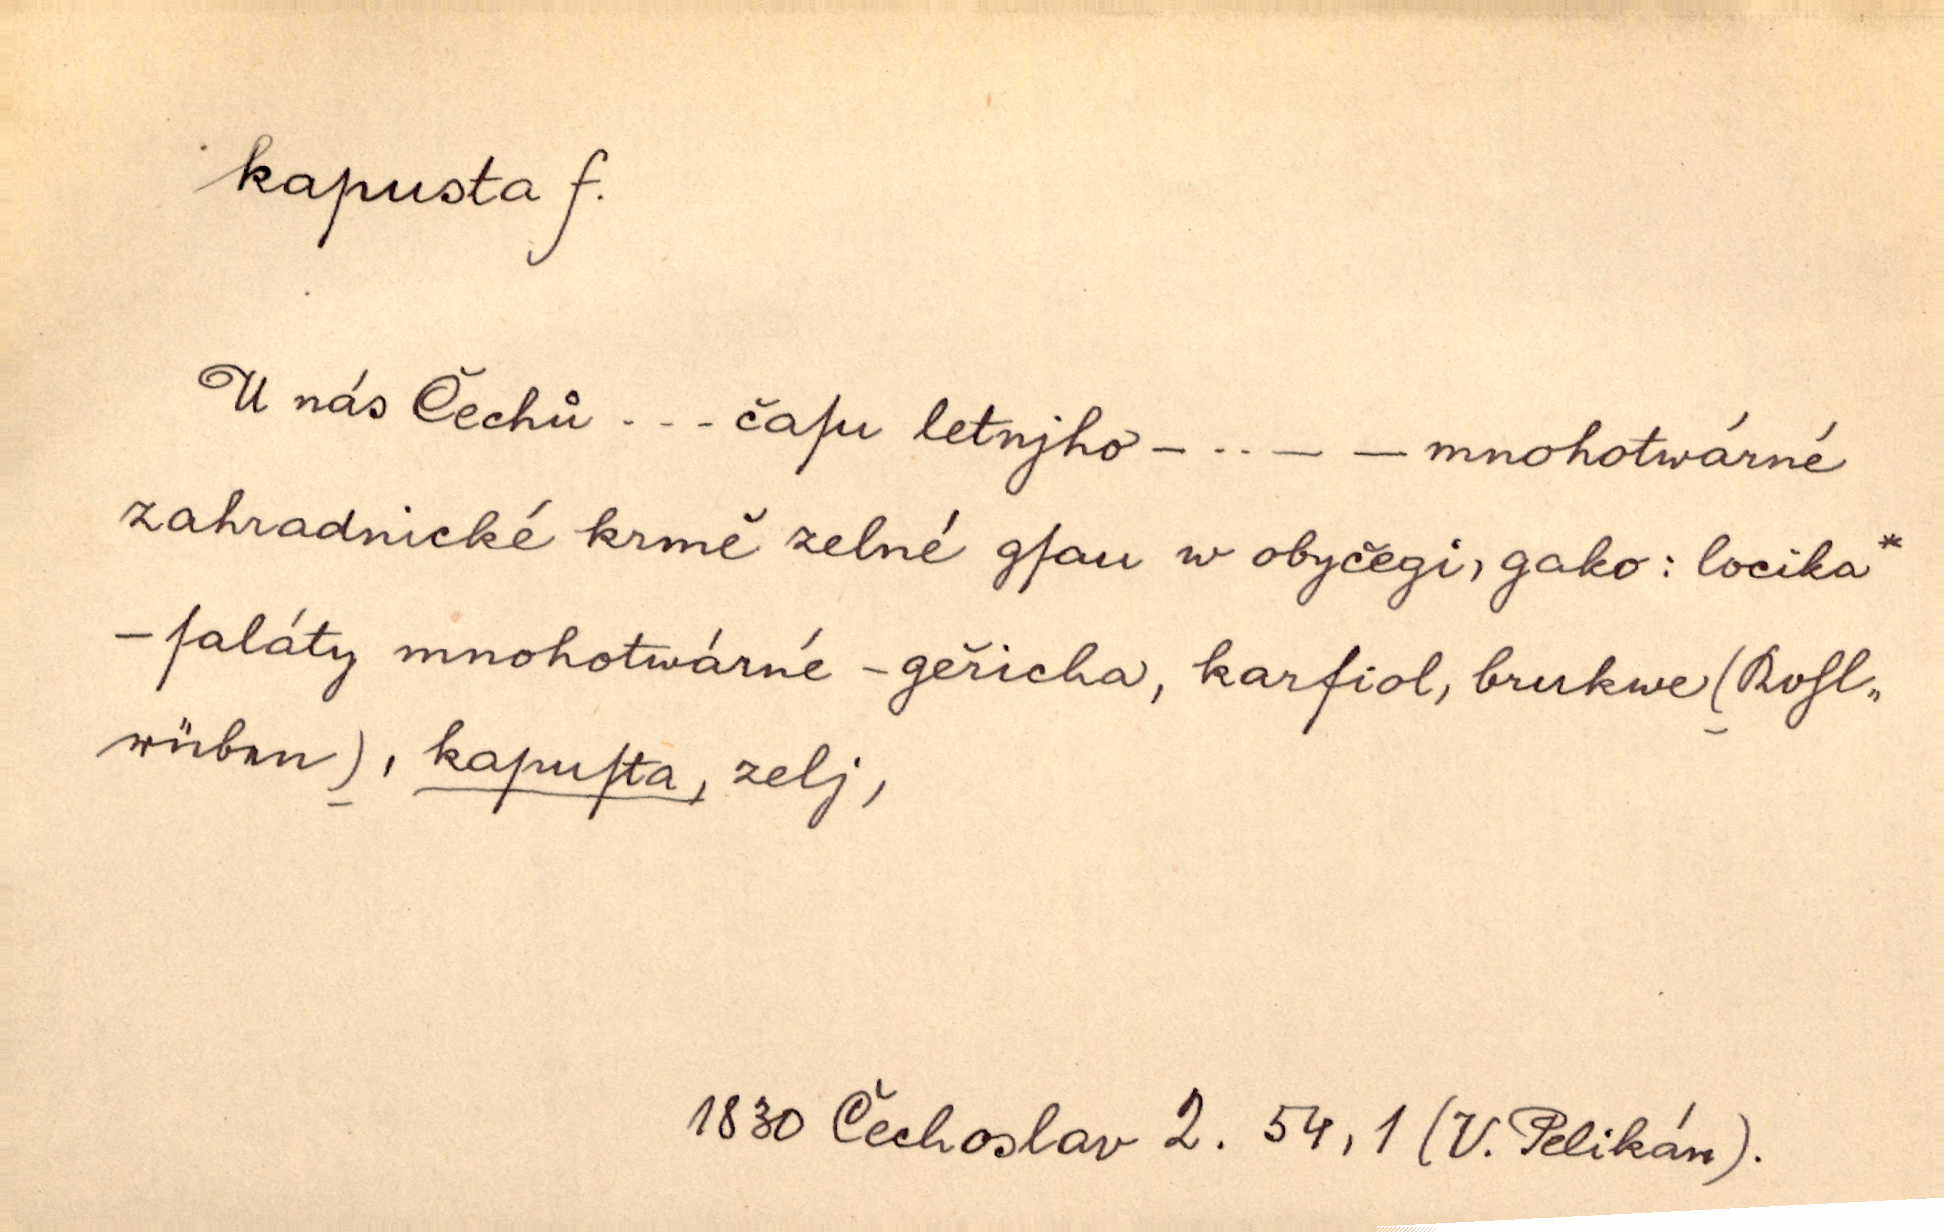 kapusta f.
U nás Čechů - - - čaſu letnjho – . . – – mnohotwárné
zahradnické krmě zelné gſau w obyčegi, gako: locika*
– ſaláty mnohotwárné – geřicha, karfiol, brukwe (Kohl„
rüben), kapuſta, zelj,
1830 Čechoslav 2. 54, 1 (V. Pelikán).